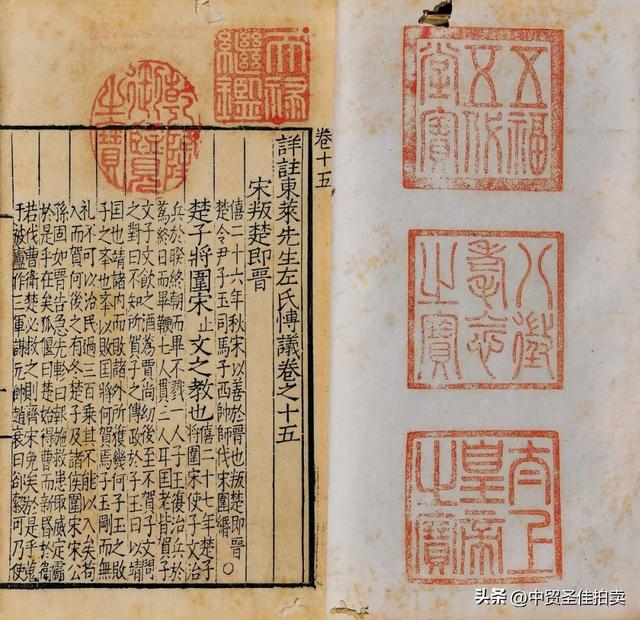 五福五代堂寶
八徵耄念之寶
太上皇帝之寶
天祿繼鑑
乾隆御覽之寶
卷十五
詳註東萊先生左氏博議卷之十五
宋叛楚即晉
僖二十六年秋宋以善於晉也叛楚即晉○
楚令尹子玉司馬子西帥師伐宋圍緡
楚子將圍宋止文之教也
僖二十七年楚子
將圍宋使子文治
兵於睽終朝而畢不戮一人子玉復治兵於
蒍終日而畢鞭七人貫三人耳囯老皆賀子
文子文飲之酒蒍賈尚幼後至不賀子文問
之對曰不知所賀子之傳政於子玉曰以靖
囯也靖諸内而敗諸外所獲幾何子玉之敗
子之舉也舉以敗囯將何賀焉子玉剛而無
礼不可以治民過三百乘其不能以入矣苟
入而賀何後之有冬楚子及諸侯圍宋宋公
孫固如晉告急先軫曰報施救患取威定霸
於是乎在矣狐偃曰楚始得曹而新昏於衛
若伐曹衛楚必救之則齊宋免矣於是乎蒐
于被廬作三軍謀元帥趙衰曰郤縠可乃使
头条 @中贸圣佳拍卖